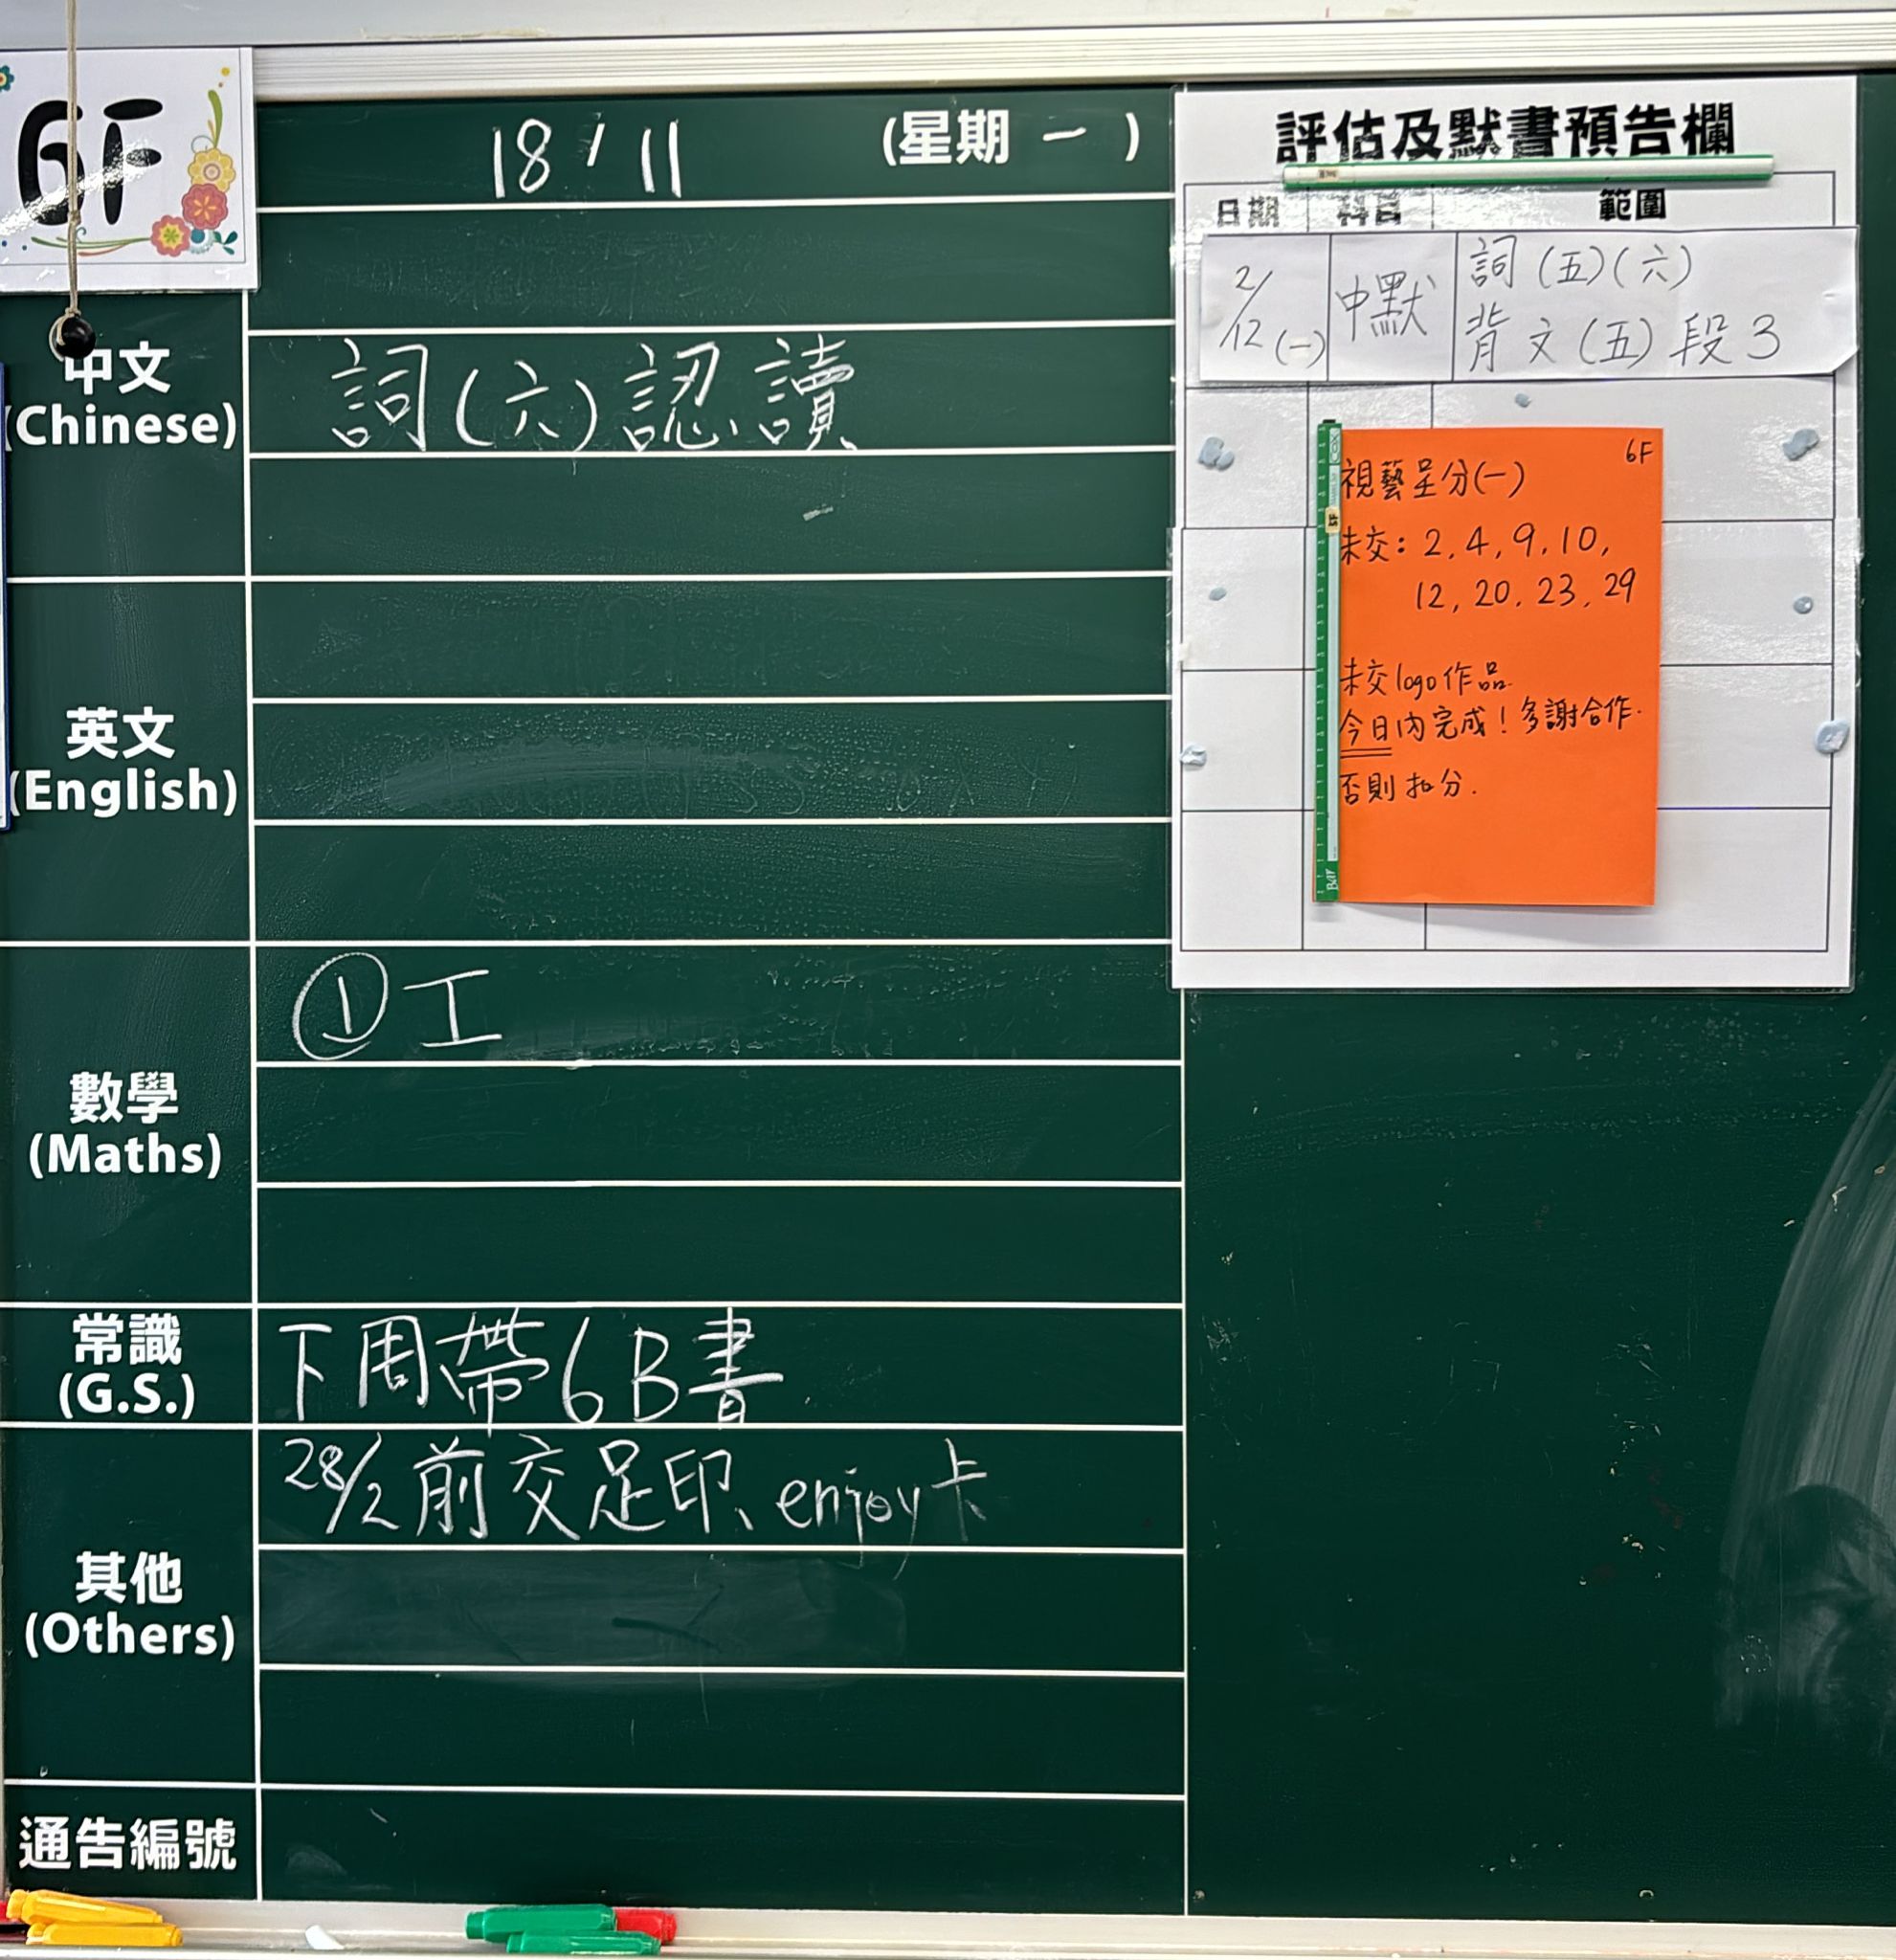 6F
18/11 (星期一)
中文
(Chinese)
詞(六)認讀
英文
(English)
數學
(Maths)
①工
常識
(G.S.)
下周帶6B書
其他
(Others)
28/2前交足印、enjoy卡
通告編號
評估及默書預告欄
日期 科目 範圍
2/12(一) 中默 詞(五)(六)
背文(五)段3
6F
視藝呈分(一)
未交：2, 4, 9, 10,
12, 20, 23, 29
未交logo作品
今日內完成！多謝合作.
否則扣分.